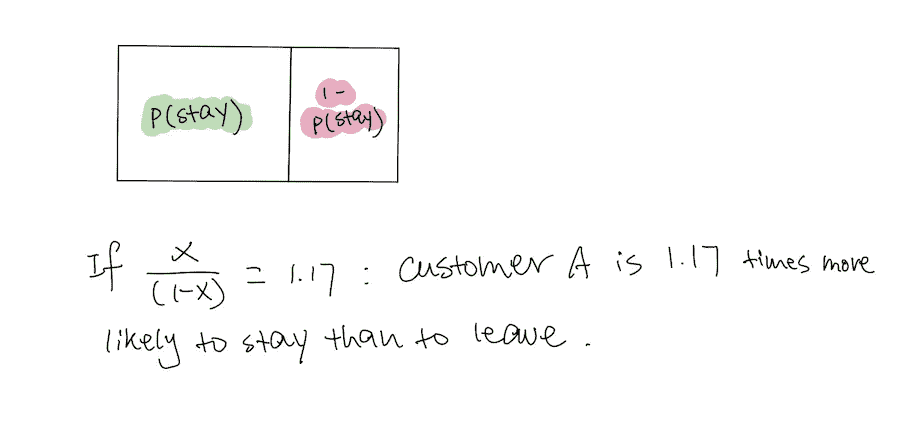 P(stay)
1-
P(stay)
If x/(1-x) = 1.17 : customer A is 1.17 times more
likely to stay than to leave.